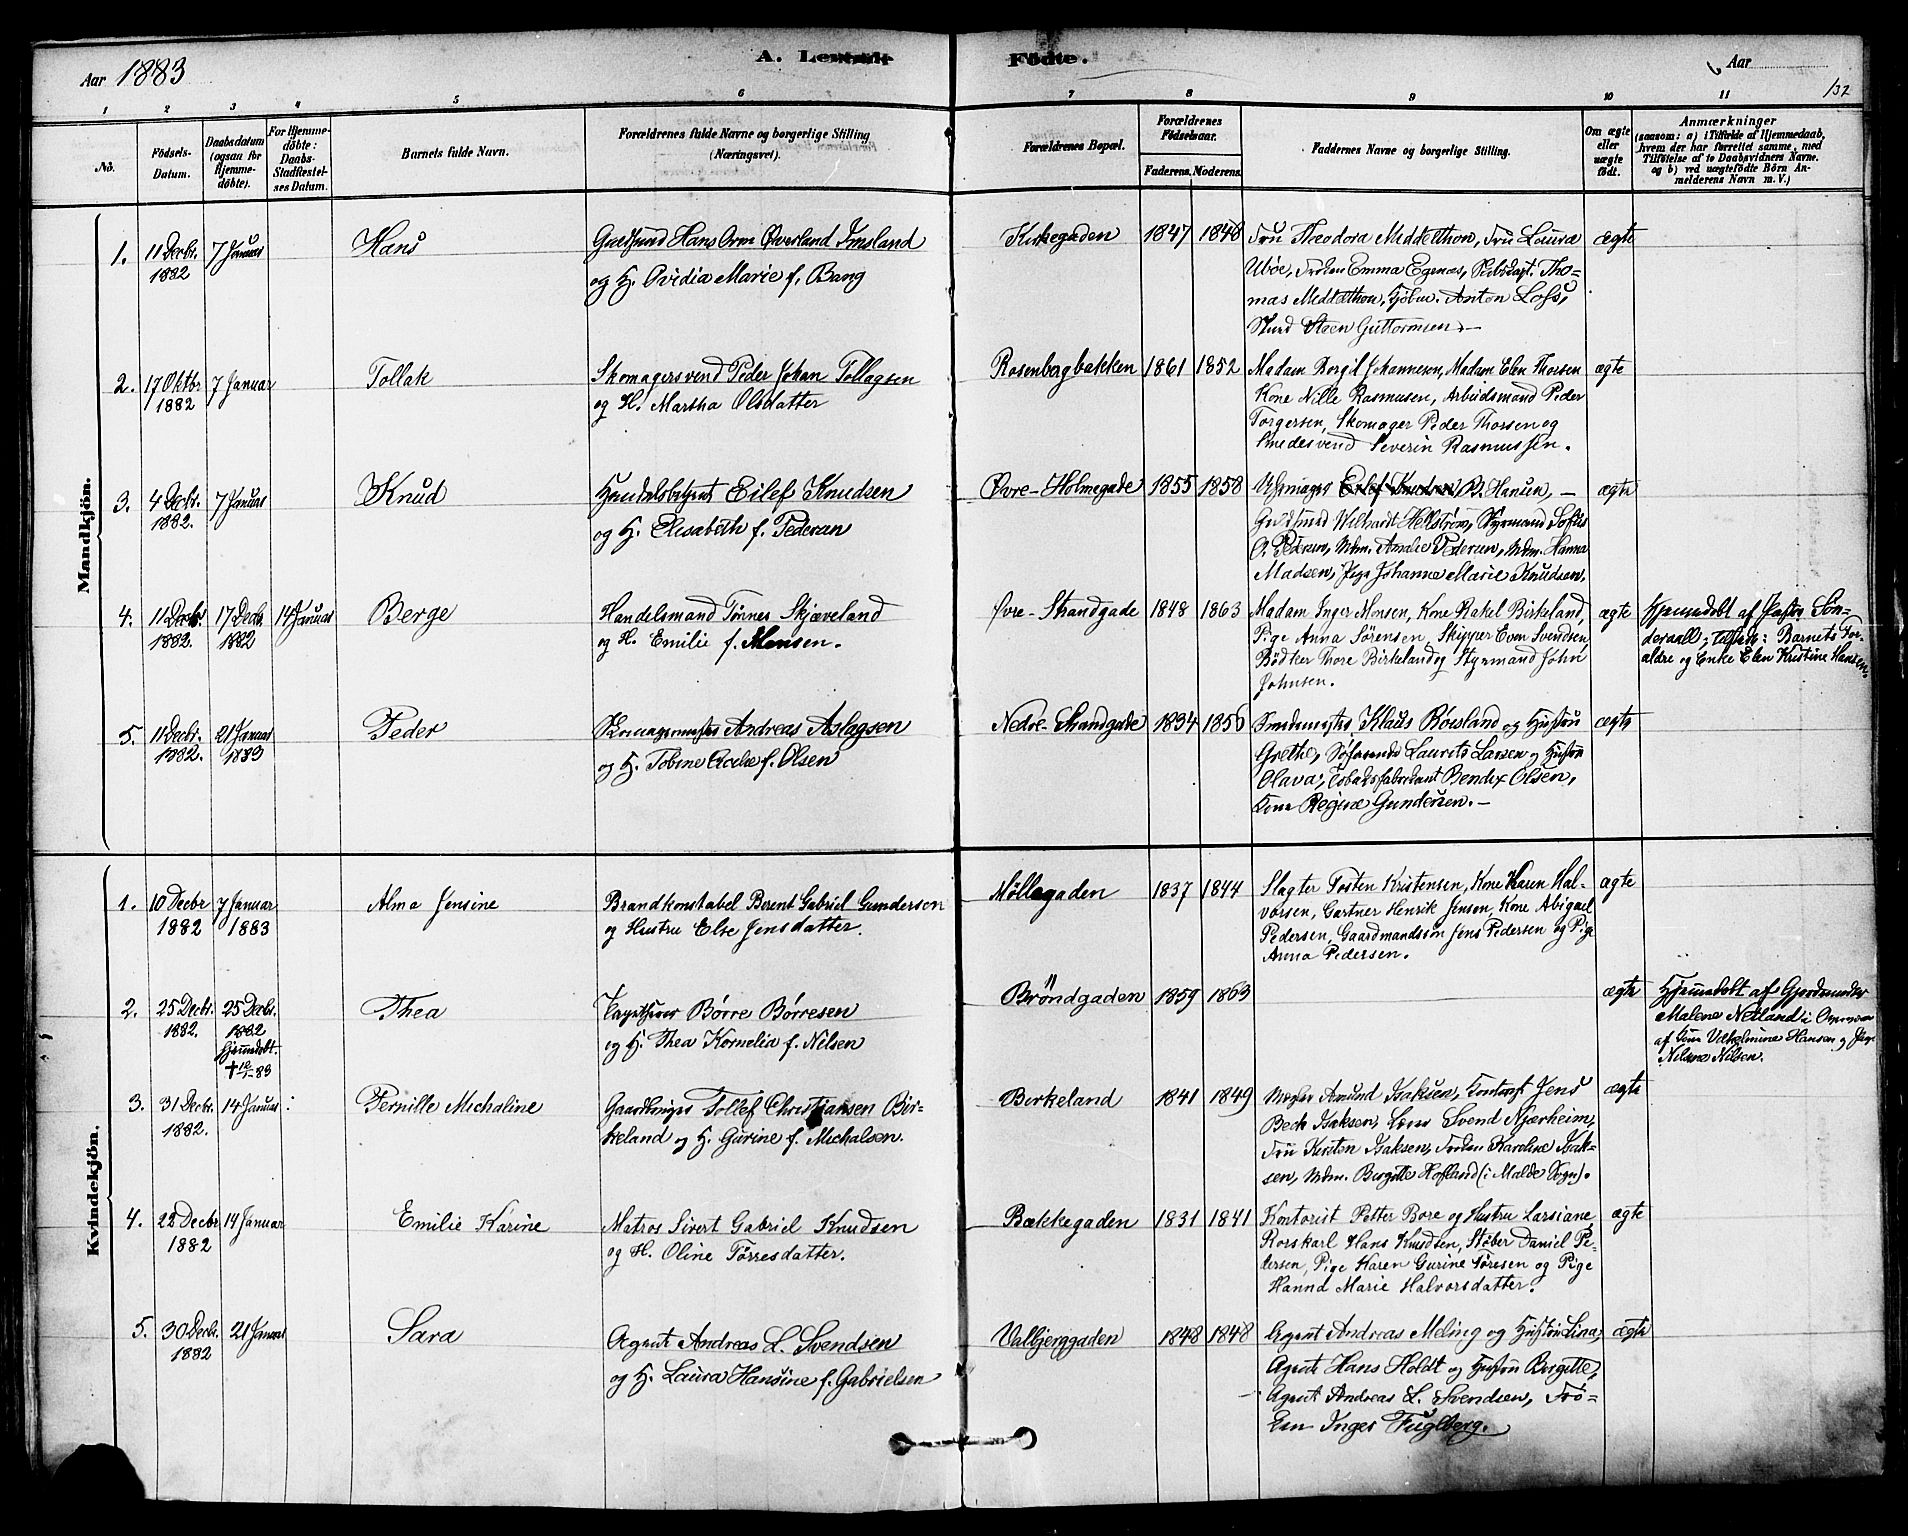 Aar 1883
A. Levende
Fødte.
Aar
132
1 2 3 4 5 6 7 8 9 10 11
No.
Fødsels-
Datum.
Daabsdatum
(ogsaa for
Hjemme-
døbte).
For Hjemme-
døbte:
Daabs-
Stadfæstel-
ses Datum.
Barnets fulde Navn.
Forældrenes fulde Navne og borgerlige Stilling
(Næringsvei).
Forældrenes Bopæl.
Forældrenes
Fødselsaar.
Faderens. Moderens.
Faddernes Navne og borgerlige Stilling.
Om ægte
eller
uægte
født.
Anmærkninger
(saasom: a) i Tilfælde af Hjemmedaab,
hvem der har forrettet samme, med
Tilføielse af to Daabsvidners Navne.
og b) ved uægtefødte Børn An-
melderens Navn m. V.)
Mandkjön.
1. 11 Decbr. 7 Januar Hans Guldsmed Hans Orm Øverland Imsland Kirkegaden 1847 1848 Fru Theodora Middelthon, Fru Laura ægte
1882 og H. Ovidia Marie f. Bang Ubøe, Frøken Emma Egenæs, Tho-
mas Middelthon, Anton Lofs,
Steen Guttormsen.—
2. 17 Oktbr 7 Januar Tollak Skomagersvend Peder Johan Tollagsen Rosenbergbakken 1861 1852 Madam Borgil Johannesen, Madam Elen Thorsen ægte
1882 og H. Martha Olsdatter Kone Nille Rasmusen, Arbeidsmand Peder
Torgersen, Skomager Peder Thorsen og
Smedesvend Severin Rasmussen.
3. 4 Decbr. 7 Januar Knud Eilef Knudsen Øvre-Holmegade 1855 1858 Eilef Knudsen B. Hansen, — ægte
1882. og H. Elisabeth f. Pedersen Guldsmed Hellstrøm, Styrmand Sofus
O. Pedersen, Mdm. Amalie Pedersen, Mdm. Hanna
Madsen, Pige Johanne Marie Knudsen.
4. 11 Decbr 17 Decb. 14 Januar Berge Handelsmand Tönnes Skjæveland Øvre-Strandgade 1848 1863 Madam Inger Monsen, Kone Rakel Birkeland, ægte Hjemmedøbt af Pastor Sön-
1882. 1882 og H. Emilie f. Monsen. Pige Anna Sörensen, Skipper Even Svendsen Barnets For-
Bödker Thore Birkeland og Styrmand John ældre og Enke Elen Kristine Hansen.
Johnsen.
5. 11 Decbr. 21 Januar Peder Skomagermester Andreas Aslagsen Nedre-Strandgade 1834 1856 Smedemester Klaus og Hustru ægte
1882. 1883 og H. Tobine f. Olsen Grethe, Søfarende Laurits Larsen og Hustru
Olava, Tobaksfabrikant Bendix Olsen,
Kone Regine Gundersen.—
Kvindekjön.
1. 10 Decbr 7 Januar Alma Jensine Brandkonstabel Berent Gabriel Gundersen Möllegaden 1837 1844 Slagter Tosten Kristensen, Kone Karen Hal- ægte
1882 1883 og Hustru Else Jensdatter. vorsen, Gartner Henrik Jensen, Kone Abigael
Pedersen, Gaardmandssön Jens Pedersen og Pige
Anna Pedersen.
2. 25 Decbr. 25 Decbr. Thea Børre Børresen Brøndgaden 1859 1863 ægte Hjemmedøbt af Gjordemoder
1882. 1882 og H. Thea Kornelia f. Nilsen Malene Netland i
hjemmedøbt. af Kone Vilhelmine Hansen og Pige
Nilsen.
3. 31 Decbr. 14 Januar Pernille Michaline Gaardbruger Tollef Christjansen Bir- Birkeland 1841 1849 Amund Isaksen, Jens ægte
1882. keland og H. Gurine f. Michalsen. Beck Isaksen, Svend Njærheim,
Fru Kirsten Isaksen, Frøken Karoline Isak-
sen, Mdm. Birgitte Hofland (i Malde Sogn).
4. 22 Decbr 14 Januar Emilie Karine Matros Sivert Gabriel Knudsen Bækkegaden 1831 1841 Kontorist Petter Bore og Hustru Larsiane, ægte
1882 og H. Oline Tørresdatter. Rorskarl Hans Knudsen, Støber Daniel Pe-
dersen, Pige Karen Gurine Töresen og Pige
Hanna Marie Halvorsdatter.
5. 30 Decbr. 21 Januar Sara Agent Andreas L. Svendsen Valbjerggaden 1848 1848 Agent Andreas Meling og Hustru Lina, ægte
1882 og H. Laura Hansine f. Gabrielsen Agent Hans Holdt og Hustru Birgitte,
Agent Andreas L. Svendsen, Frö-
ken Inger Fuglberg.